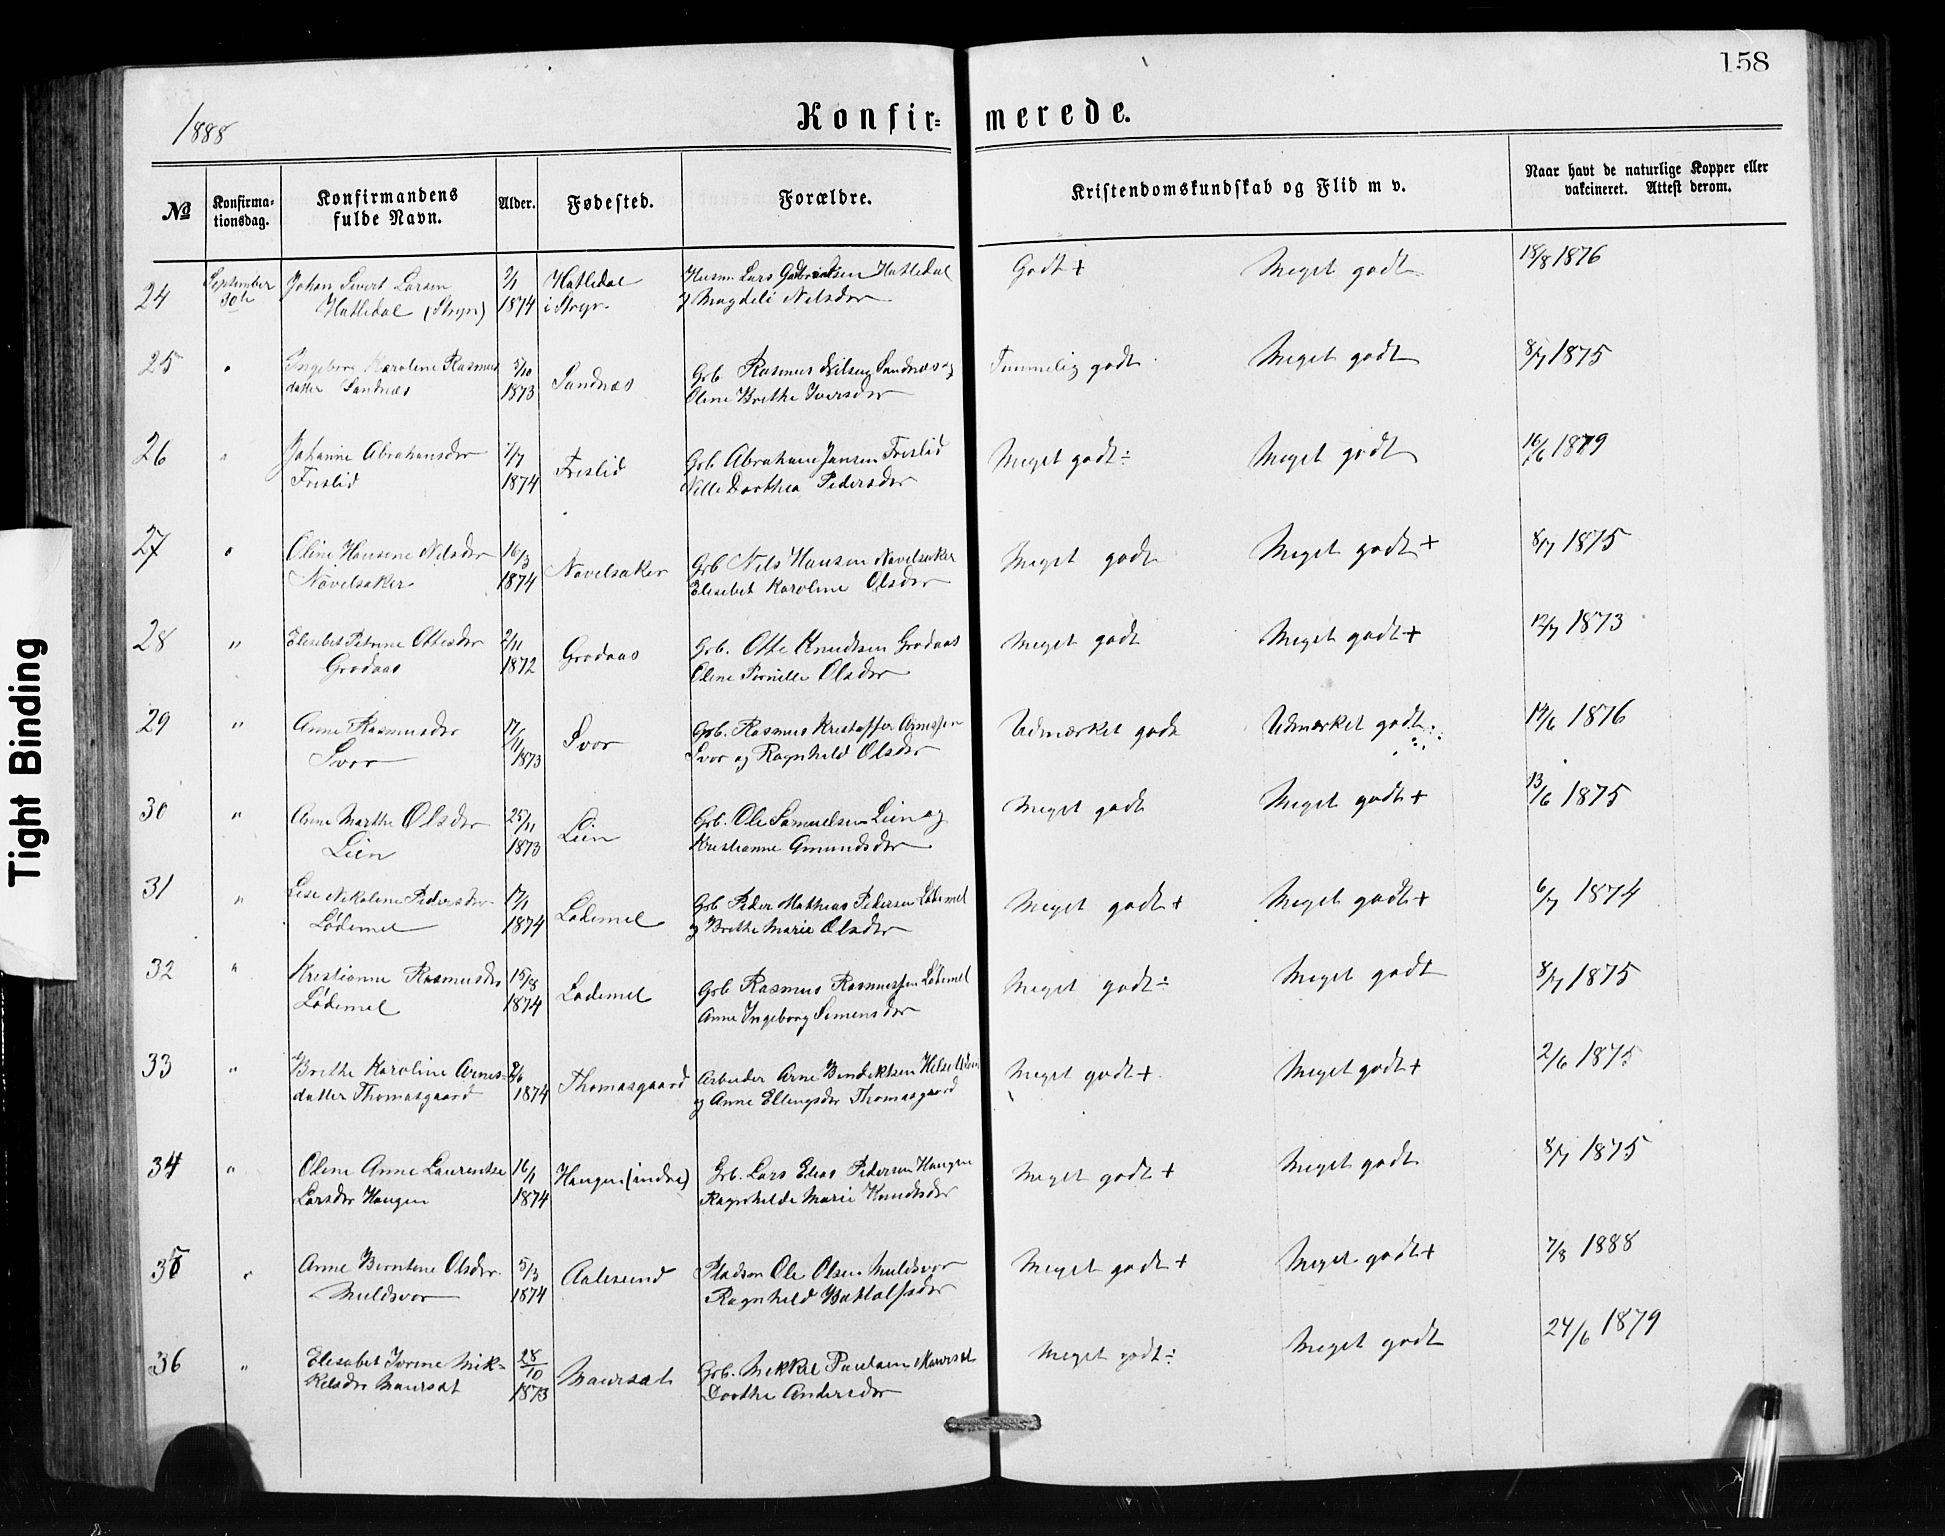 158
1888
Konfir= merede.
№ Konfirma-tionsdag. Konfirmandens fulde Navn. Alder. Fødested. Forældre. Kristendomskundskab og Flid m v. Naar havt de naturlige Kopper eller vakcineret. Attest derom.
24 September 30te Johan Sivert Larsen 1874 Hatledal Husm. Lars Hatledal Godt + Meget godt 18/8 1876
Hatledal (Stryn) i Stryn. og Magdeli Nilsdor
25 " Ingebor Karoline Rasmus 5/10 Sandnæs Grb. Rasmus Nilsen Sandnæs og Temmelig godt Meget godt 8/7 1875
datter Sandnæs 1873 Oline Brithe Iversdor
26 " Johanne Abrahamsdor 1/7 Frislid Grb Abraham Jansen Frislid Meget godt ÷ Meget godt 16/6 1879
Frislid 1874 Nille Dorthea Pedersdor
27 " Oline Hansine Nilsdor 16/3 Navelsaker Grb Nils Hansen Navelsaker Meget godt Meget godt + 8/7 1875
Navelsaker 1874 Elisabet Karoline Olsdor
28 " Elisebet Petrine Ottesdor 2/11 Grodaas Grb. Otte Knudsen Grodaas Meget godt Meget godt + 12/7 1873
Grodaas 1872 Oline Pernille Olsdor
29 " Anne Rasmusdor 17/11 Svor Grb. Rasmus Kristoffer Arnessen Udmærket godt Udmærket godt 14/6 1876
Svor 1873 Svor og Ragnhild Olsdor
30 " Anne Marthe Olsdor 25/11 Lien Grb. Ole Samuelsen Lien og Meget godt Meget godt + 13/6 1875
Lien 1873 Kristianne Amundsdor
31 " Lise Nikoline Pedersdor 17/1 Lødemel Grb Peder Mathias Pedersen Lødemel Meget godt + Meget godt + 6/7 1874
Lødemel 1874 og Brithe Marie Olsdor
32 " Kristianne Rasmusdor 15/8 Lødemel Grb Rasmus Rasmussen Lødemel Meget godt ÷ Meget godt 8/7 1875
Lødemel 1874 Anne Ingeborg Simensdor
33 " Brithe Karoline Arnes- Thomasgaard Arbeider Arne Bendiktsen Meget godt + Meget godt + 2/6 1875
datter Thomasgaard 1874 og Anne Ellingsdor Thomasgaard
34 " Oline Anne Laurentse 16/1 Haugen (indre) Grb. Lars Elias Pedersen Haugen Meget godt + Meget godt 8/7 1875
Larsdor Haugen 1874 Ragnhilde Marie Knudsdor
35 " Anne Berntine Olsdor 5/3 Aalesund Pladsm Ole Olsen Muldsvor Meget godt + Meget godt + 7/8 1888
Muldsvor 1874 Ragnhild
36 " Elisabet Ivrine Mik- 28/10 Maursæt Grb. Mikkel Paulsen Maursæt Meget godt ÷ Meget godt 24/6 1879
kelsdor Maursæt 1873 Dorthe Andersdor
Tight Binding